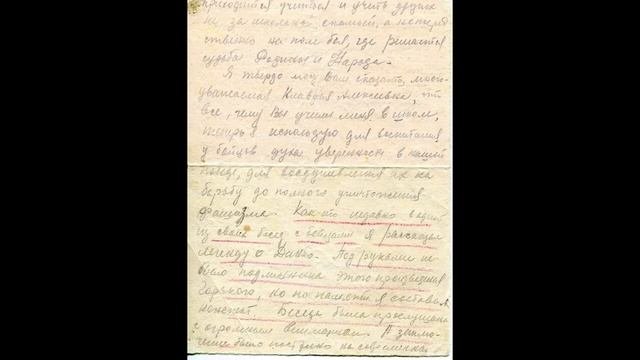 приходится учиться и учить других
не за школьной скамьёй, а непосред
ственно на поле боя, где решается
судьба Родины и Народа.
Я твердо могу Вам сказать, много-
уважаемая Клавдия Алексеевна, что
все, чему Вы учили меня в школе,
теперь я использую для воспитания
у бойцов духа уверенности в нашей
победе, для воодушевления их на
борьбу до полного уничтожения
фашизма. Как-то недавно в одной
из своих бесед с бойцами я рассказал
легенду о Данко. Под руками не
было подлинника этого произведения
Горького, но по памяти я составил
конспект. Беседа была прослушана
с огромным вниманием. А заклю-
чение было построено на современном